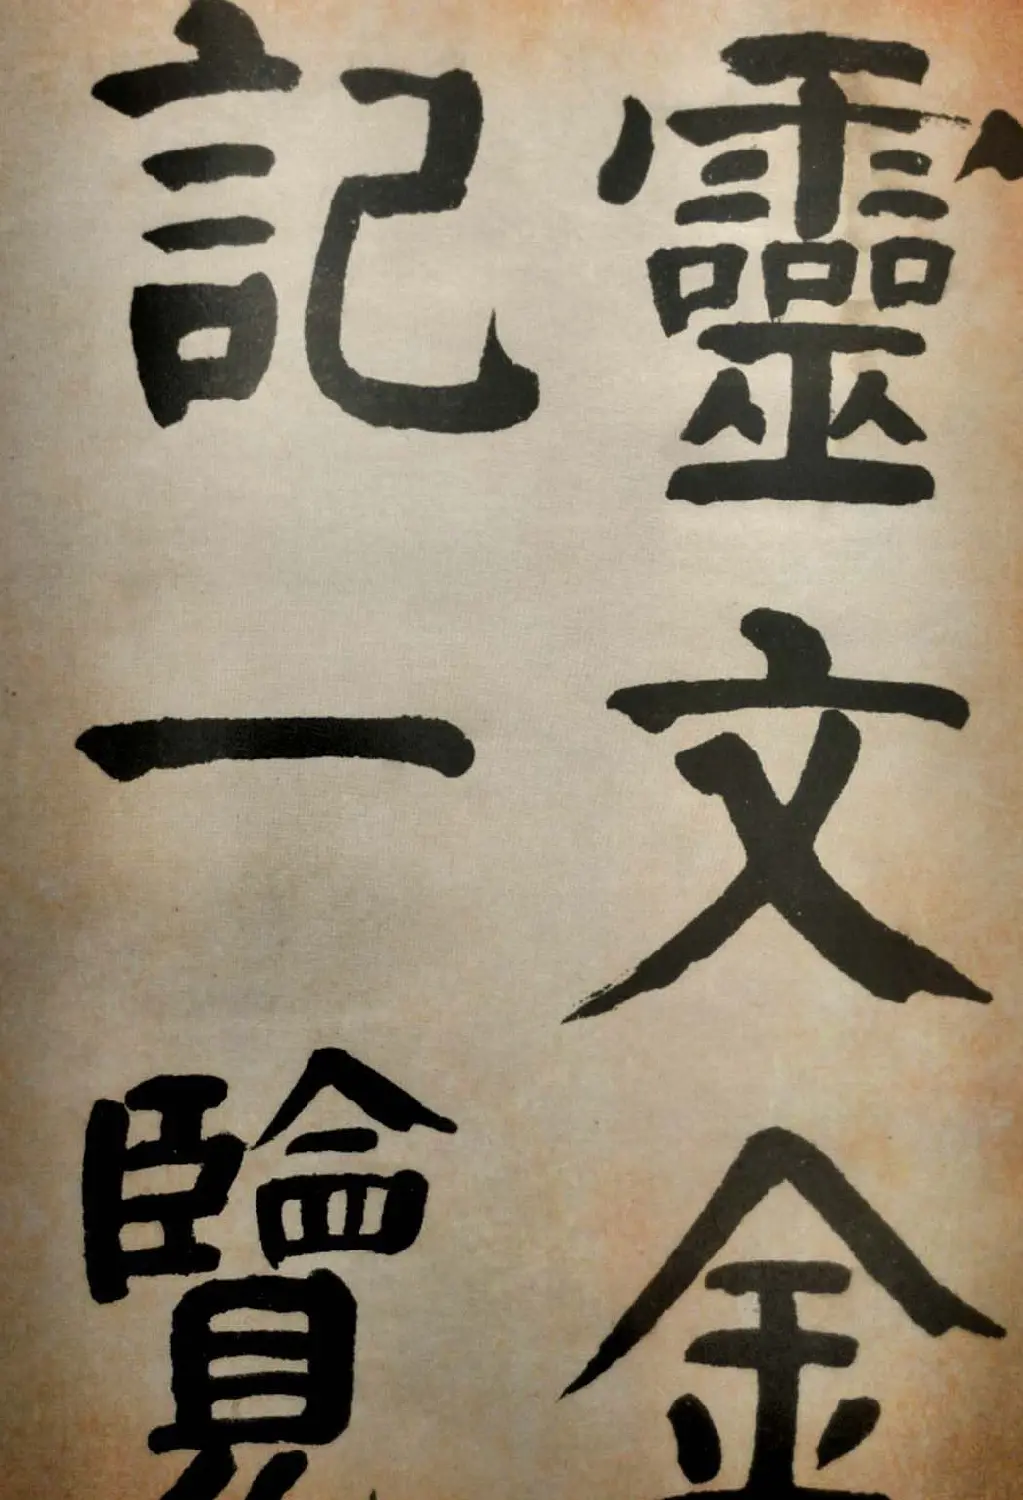 靈文金
記一覽